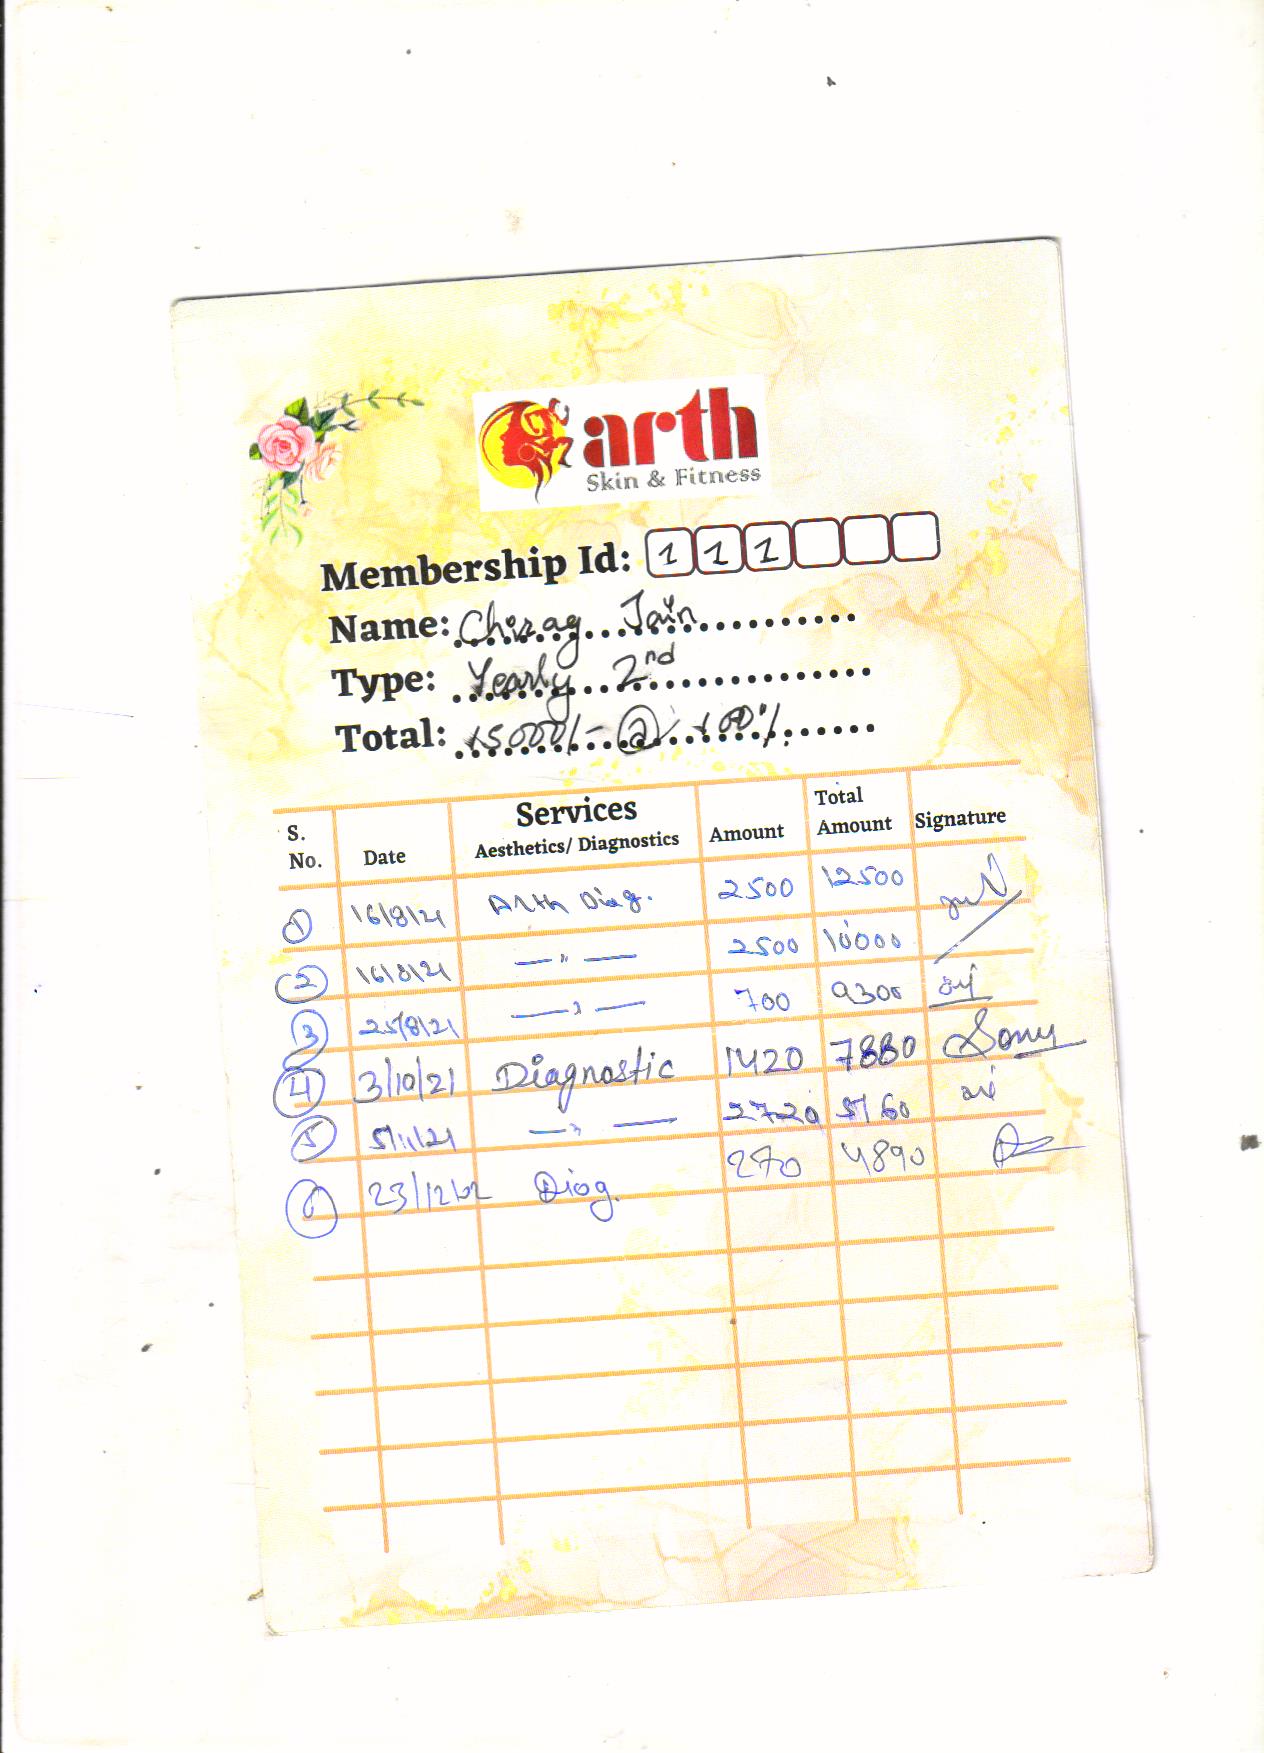 arth
Skin & Fitness
Membership Id: 111
Name: Chirag Jain
Type: Yearly 2nd
Total: 15000/- @ 100%
S. No. Date Services Aesthetics/ Diagnostics Amount Total Amount Signature
1 16/8/21 Arth Diag. 2500 12500
2 16/8/21 — " — 2500 10000
3 25/8/21 — " — 700 9300
4 3/10/21 Diagnostic 1420 7880 Sony
5 5/11/21 — " — 2720 5160
6 23/12/ Diag. 270 4890